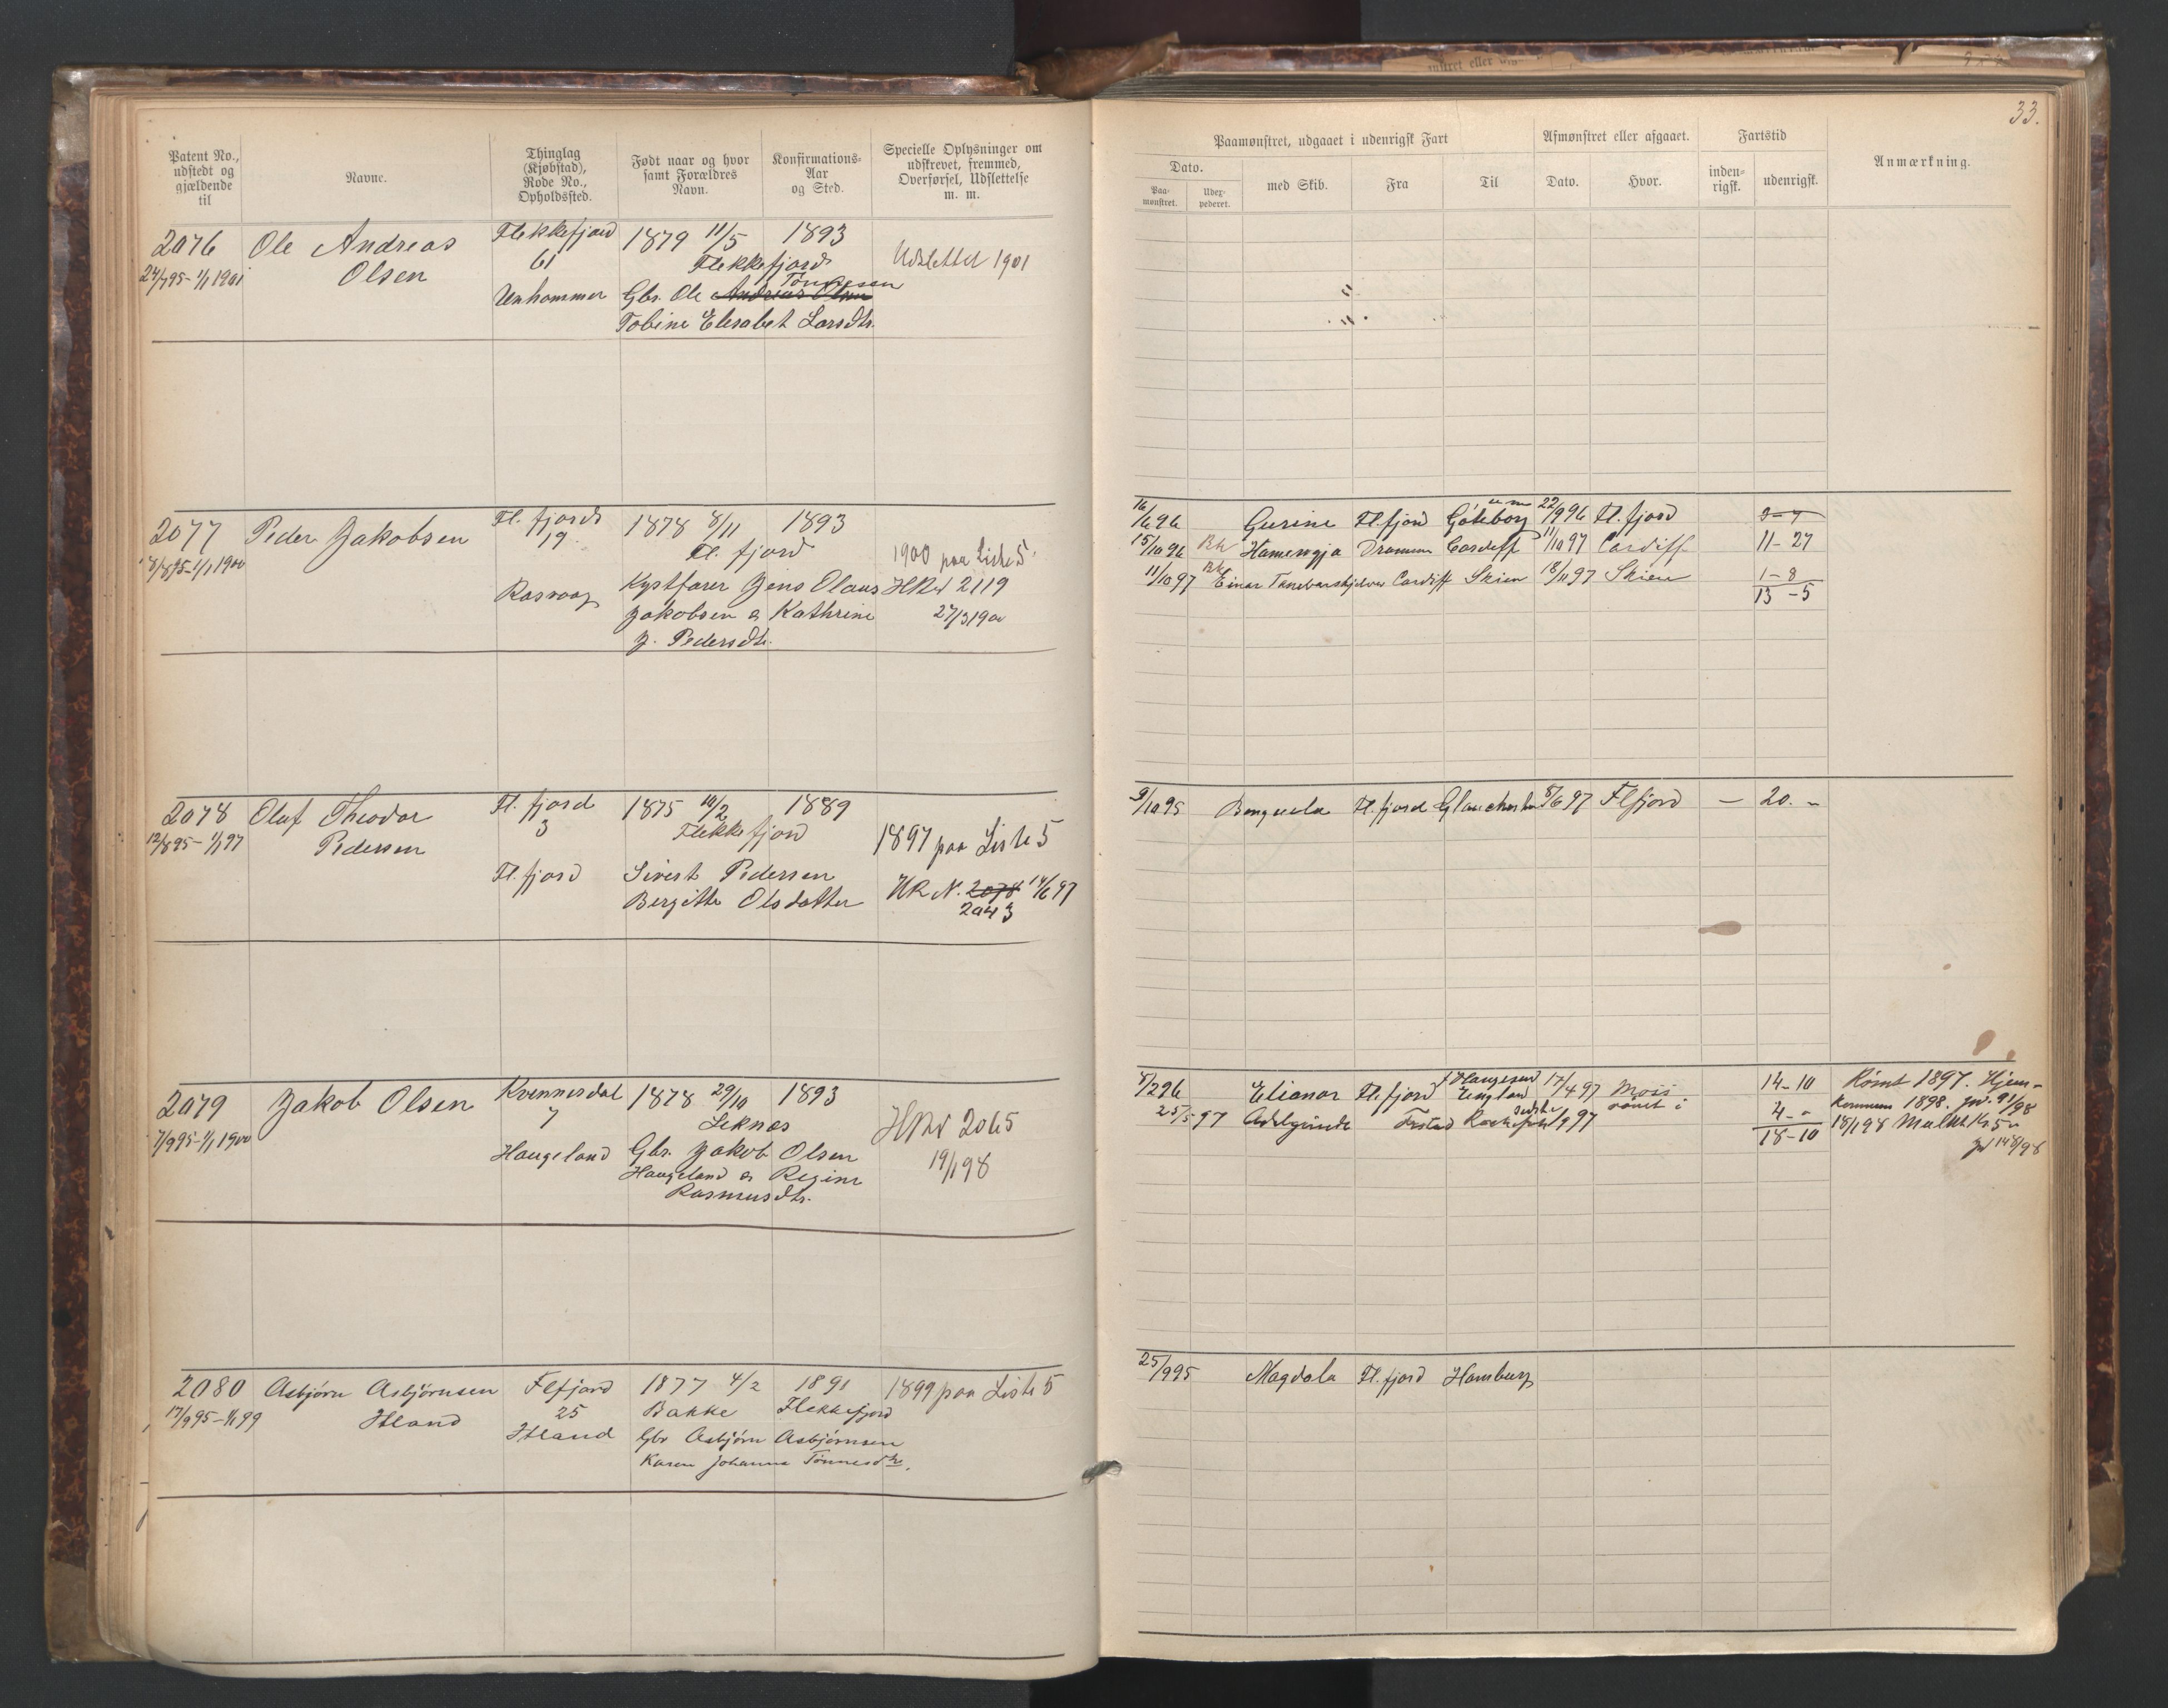 33.
Patent No., udstedt og gjældende til
Navne.
Thinglag (Kjøbstad), Rode No., Opholdssted.
Født naar og hvor samt Forældres Navn.
Konfirmations-Aar og Sted.
Specielle Oplysninger om udskrevet, fremmed, Overførsel, Udslettelse m. m.
Paamønstret, udgaaet i udenrigsk Fart
Dato.
Paa-mønstret.
Udex-pederet.
med Skib.
Fra
Til
Afmønstret eller afgaaet.
Dato.
Hvor.
Fartstid
inden-rigsk.
udenrigsk.
Anmærkning.
2076 Ole Andreas Flekkefjord 1879 11/5 1893
24/7 95 - 1/1 1901 Olsen 61 Flekkefjord Udslettet 1901
Tønnesen
Unhammer Gbr. Ole Andreas Olsen
Tobine Elisabet Larsdtr.
2077 Peder Jakobsen Fl. fjord 1878 8/11 1893
8/8 95 - 1/1 1900 19. Fl. fjord 1900 paa Liste 5
Rasvaag Kystfarer Jens Olaus HR 2119
Jakobsen & Kathrine 27/3 1900
J. Pedersdtr.
16/6 96 Gurine Fl. fjord Göteborg 22/9 96 Fl. fjord
15/10 96 Drammen Cardiff 11/10 97 Cardiff 11-27
11/10 97 Einar Tambarskjelver Cardiff Skien 18/11 97 Skien 1-8
13-5
2078 Olaf Theodor Fl. fjord 1875 10/2 1889
12/8 95 - 1/1 97 Pedersen 3 Flekkefjord 1897 paa Liste 5
Fl. fjord Sivert Pedersen HR N. 2078 14/6 97
Bergitte Olsdatter 2043
9/10 95 Benguela Fl. fjord 8/6 97 Flfjord - 20. -
2079 Jakob Olsen Kvinnesdal 1878 29/10 1893
7/9 95 - 1/1 1900 7 Leknes 2065
Haugeland Gbr. Jakob Olsen 19/1 98
Haugeland & Regine
Rasmusdtr.
8/2 96 Elianor Fl. fjord Haugesund England 17/4 97 Moss 14-10 Rømt 1897. Hjem-
25/5 97 rømt i 4-0 kommen 1898. 91/98
18-10 18/1 98 Mulkt Kr. 5
148/98
2080 Asbjørn Asbjørnsen Flfjord 1877 4/2 1891 1899 paa Liste 5
17/9 95 - 1/1 99 Itland 25 Bakke Flekkefjord
Itland Gbr Asbjørn Asbjørnsen
Karen Johanne Tønnesdtr.
25/9 95 Magdala Fl. fjord Hamburg